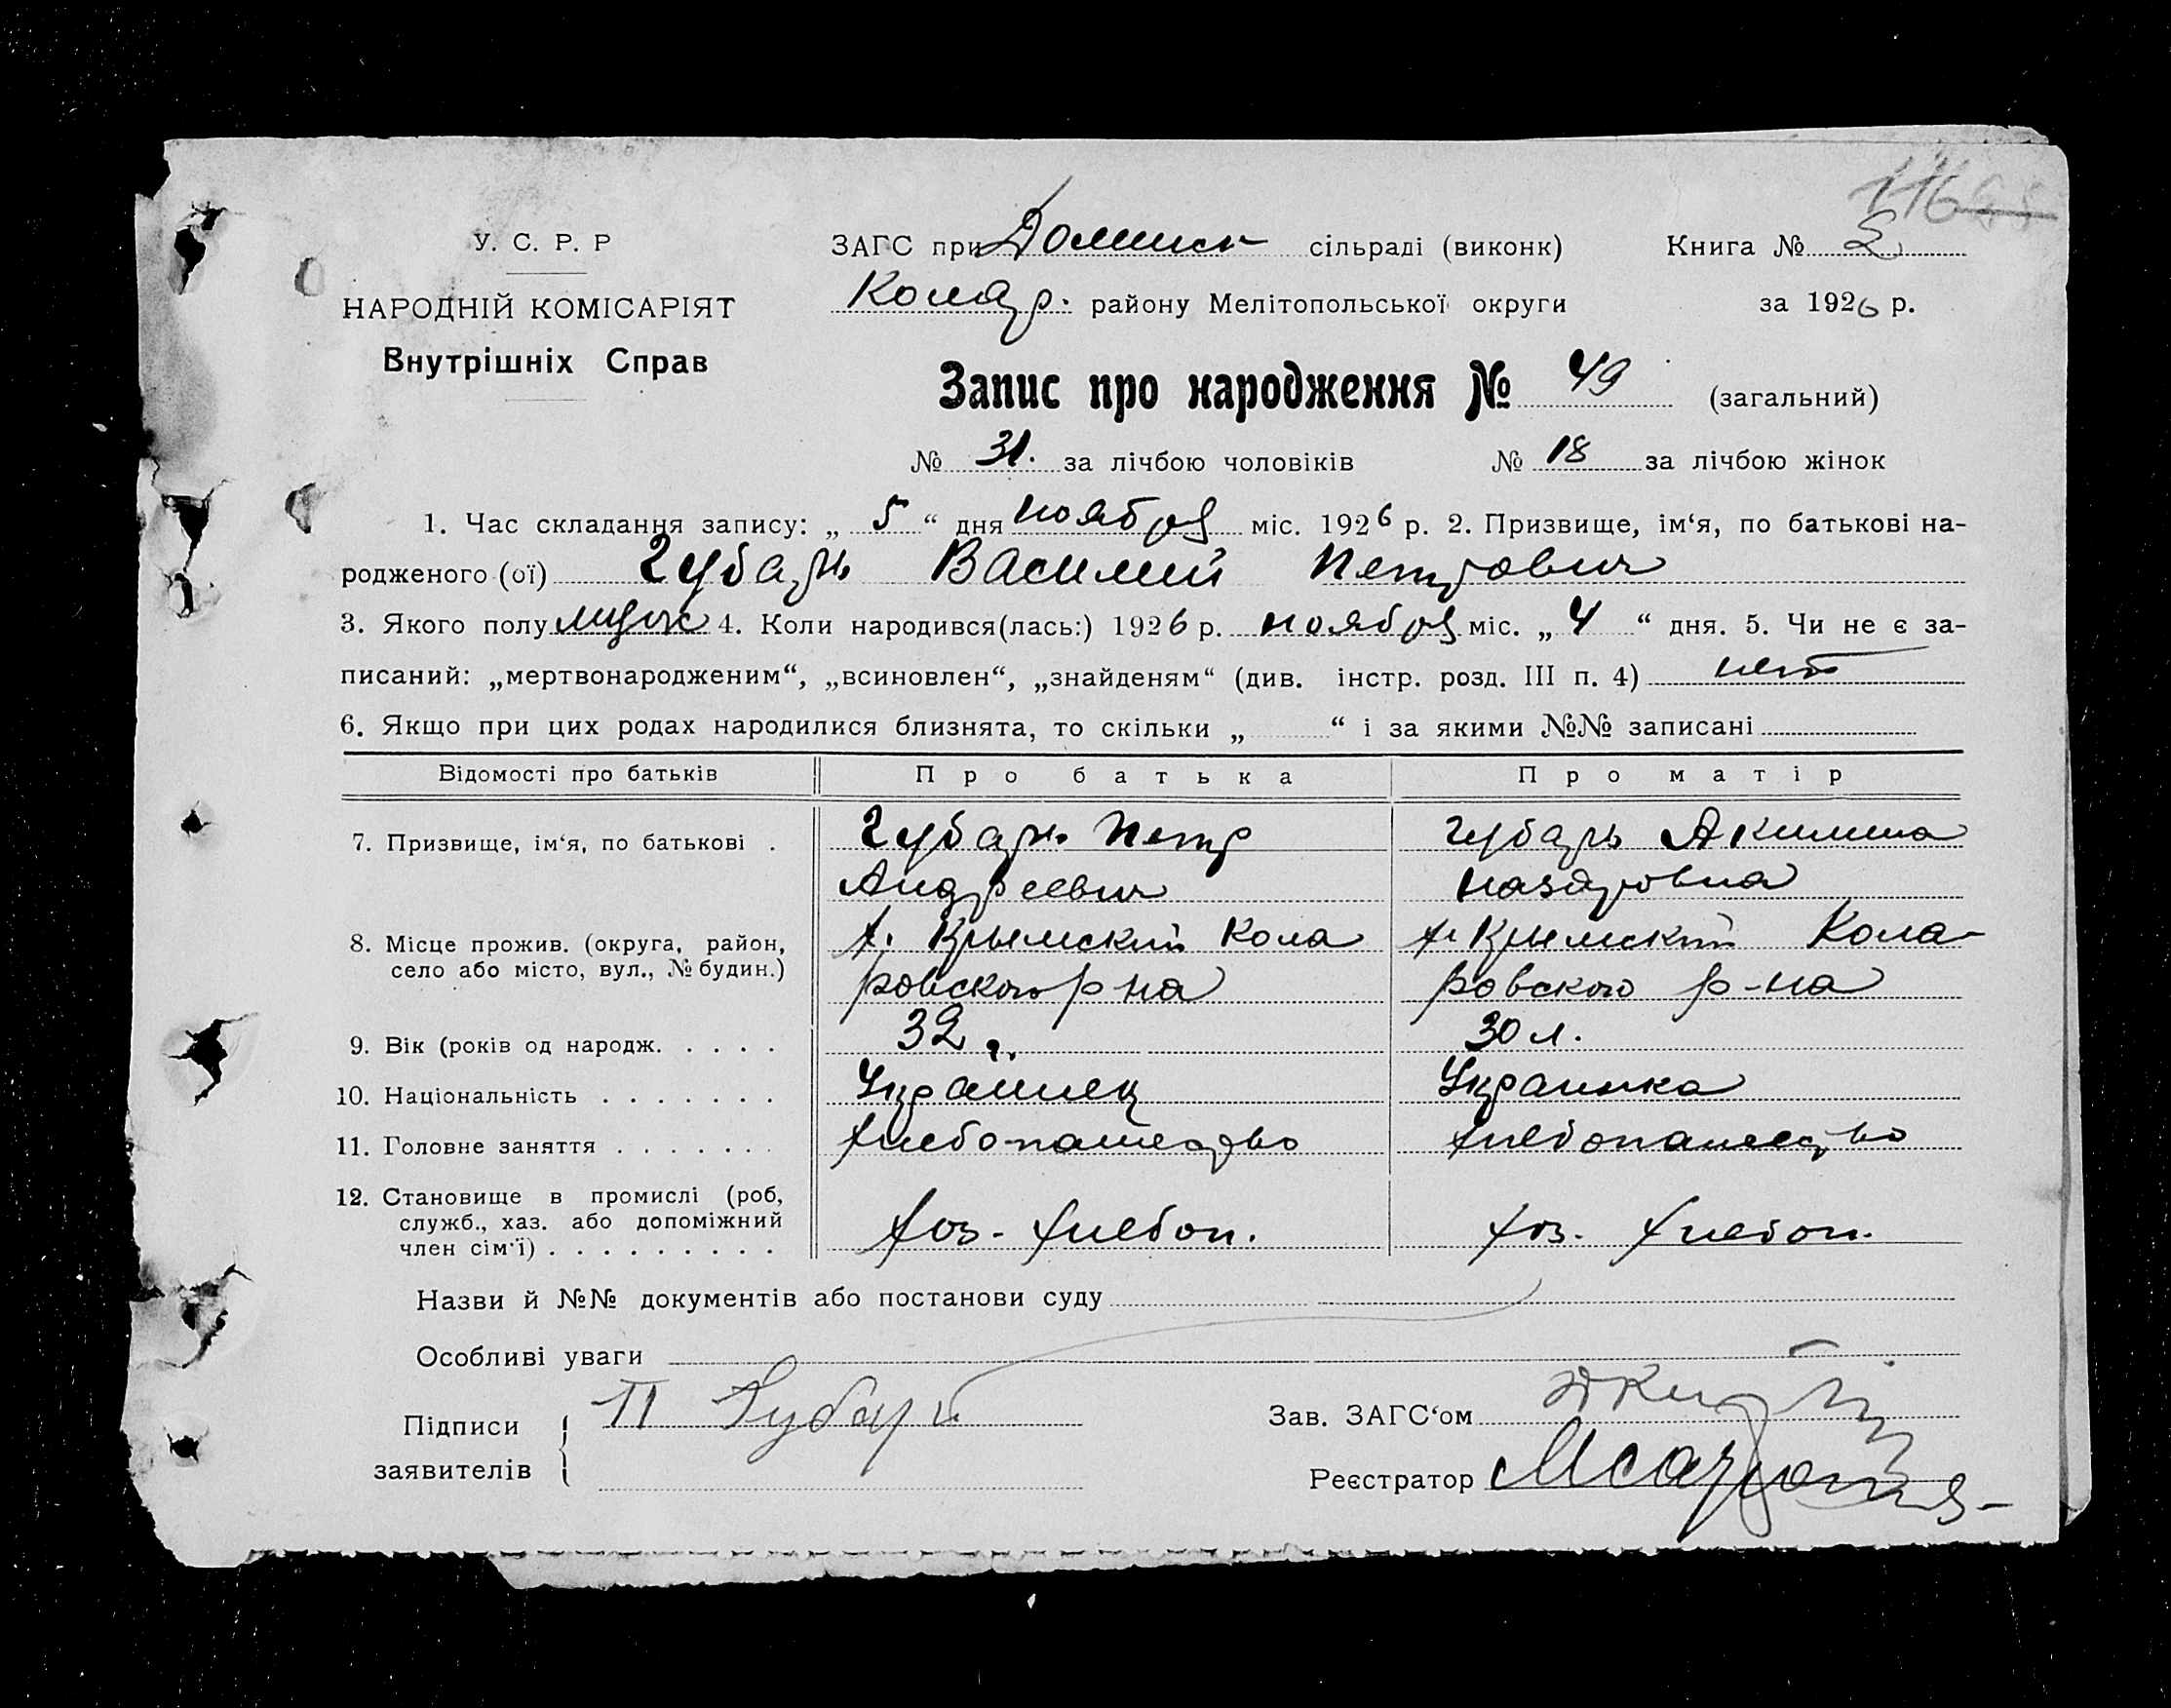 116
У. С. Р. Р
НАРОДНІЙ КОМІСАРІЯТ
Внутрішніх Справ
ЗАГС при сільраді (виконк)
Колар. району Мелітопольської округи
Книга № 2
за 1926 р.
Запис про народження № 49 (загальний)
№ 31. за лічбою чоловіків № 18 за лічбою жінок
1. Час складання запису: „ 5 “ дня ноября міс. 1926 р. 2. Призвище, ім‘я, по батькові на-
родженого (ої) Губарь Василий Петрович
3. Якого полу мужс 4. Коли народився(лась:) 1926 р. ноября міс. „ 4 “ дня. 5. Чи не є за-
писаний: „мертвонародженим“, „всиновлен“, „знайденям“ (див. інстр. розд. III п. 4) нет
6. Якщо при цих родах народилися близнята, то скільки „ “ і за якими №№ записані
Відомості про батьків Про батька Про матір
7. Призвище, ім‘я, по батькові . Губарь Петр Губарь Акилина
Андреевич Назаровна
8. Місце прожив. (округа, район, х. Крымский Кола х. Крымский Кола-
село або місто, вул., № будин.) ровского р на ровского р-на
9. Вік (років од народж. . . . . 32 г. 30 л.
10. Національність . . . . . . . Украинец Украинка
11. Головне заняття . . . . . . . хлебопашество хлебопашество
12. Становище в промислі (роб,
служб., хаз. або допоміжний хоз. хлебоп. хоз. хлебоп.
член сім‘ї) . . . . . . . . .
Назви й №№ документів або постанови суду
Особливі уваги
Підписи П Губарь
заявителів
Зав. ЗАГС‘ом
Реєстратор